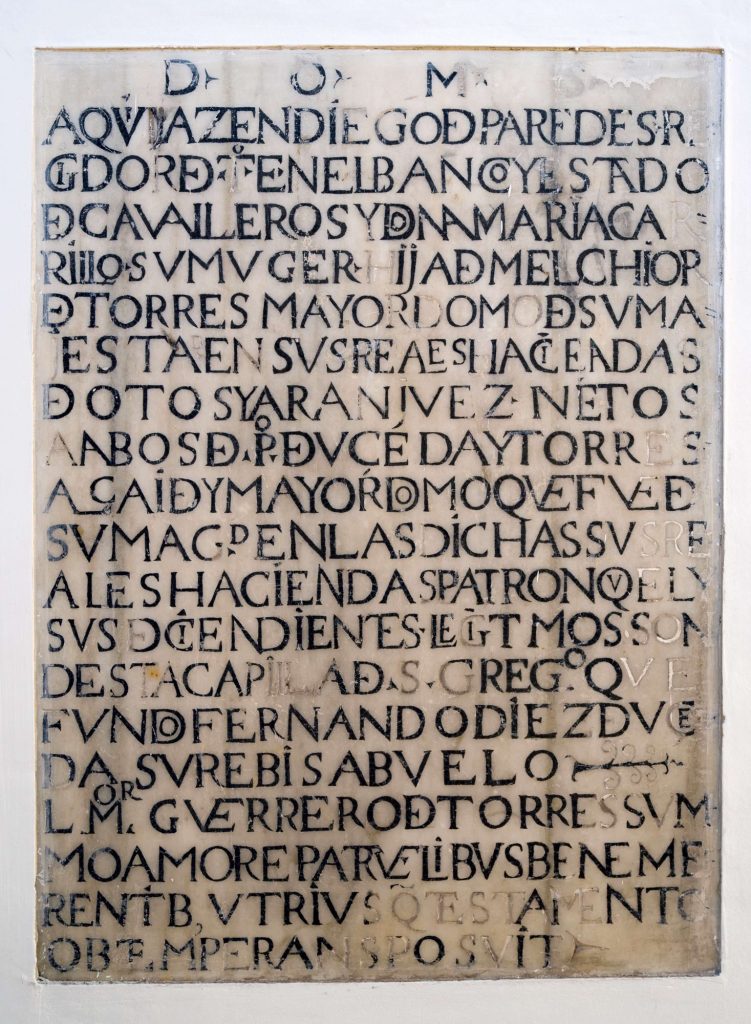 D O M S
AQVI YAZEN DIEGO DE PAREDES R
GIDOR DE TE EN EL BANCO Y ESTADO
DE CAVALLEROS Y DONA MARIA CA
RRILLO SV MVGER HIJA DE MELCHIOR
DE TORRES MAYORDOMO DE SV MA
JESTA EN SVS REALES HACIENDAS
DE OTOS Y ARANJVEZ NIETOS
AANBOS DE Pº DE VCEDA Y TORRES
ALCAIDE Y MAYORDOMO QVE FVE DE
SV MAGD EN LAS DICHAS SVS RE
ALES HACIENDAS PATRON QVE EL Y
SVS DECENDIENTES LEGITMOS SON
DESTA CAPILLA DE S GREGº QVE
FVNDO FERNANDO DIEZ DE VCE
DA SV REBISABVELO
L MOR GVERRERO DE TORRES SVM
MO AMORE PATRVELIBVS BENEME
RENTIB, VTRIVSQ TESTAMENTO
OBTEMPERANS POSVIT